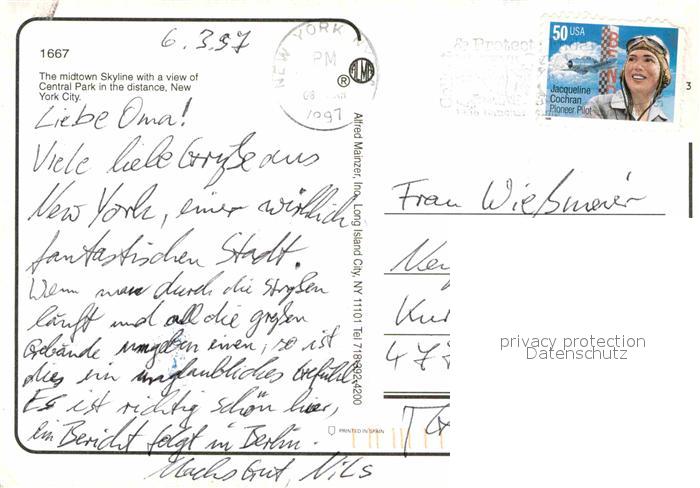 1667
The midtown Skyline with a view of
Central Park in the distance, New
York City.
6.3.97
Liebe Oma!
Viele liebe Grüße aus
New York, einer wirklich
fantastischen Stadt.
Wenn man durch die Straßen
läuft und all die großen
Gebäude umgeben einen, so ist
dies ein unglaubliches Gefühl.
Es ist richtig schön hier,
ein Bericht folgt in Berlin.
Machs Gut, Nils
NEW YORK
PM
1997
& Protect
50 USA
Jacqueline
Cochran
Pioneer Pilot
3
Alfred Mainzer, Inc., Long Island City, NY 11101 Tel 718-392-4200
PRINTED IN SPAIN
Frau Wießmeier
Kur
477
privacy protection
Datenschutz